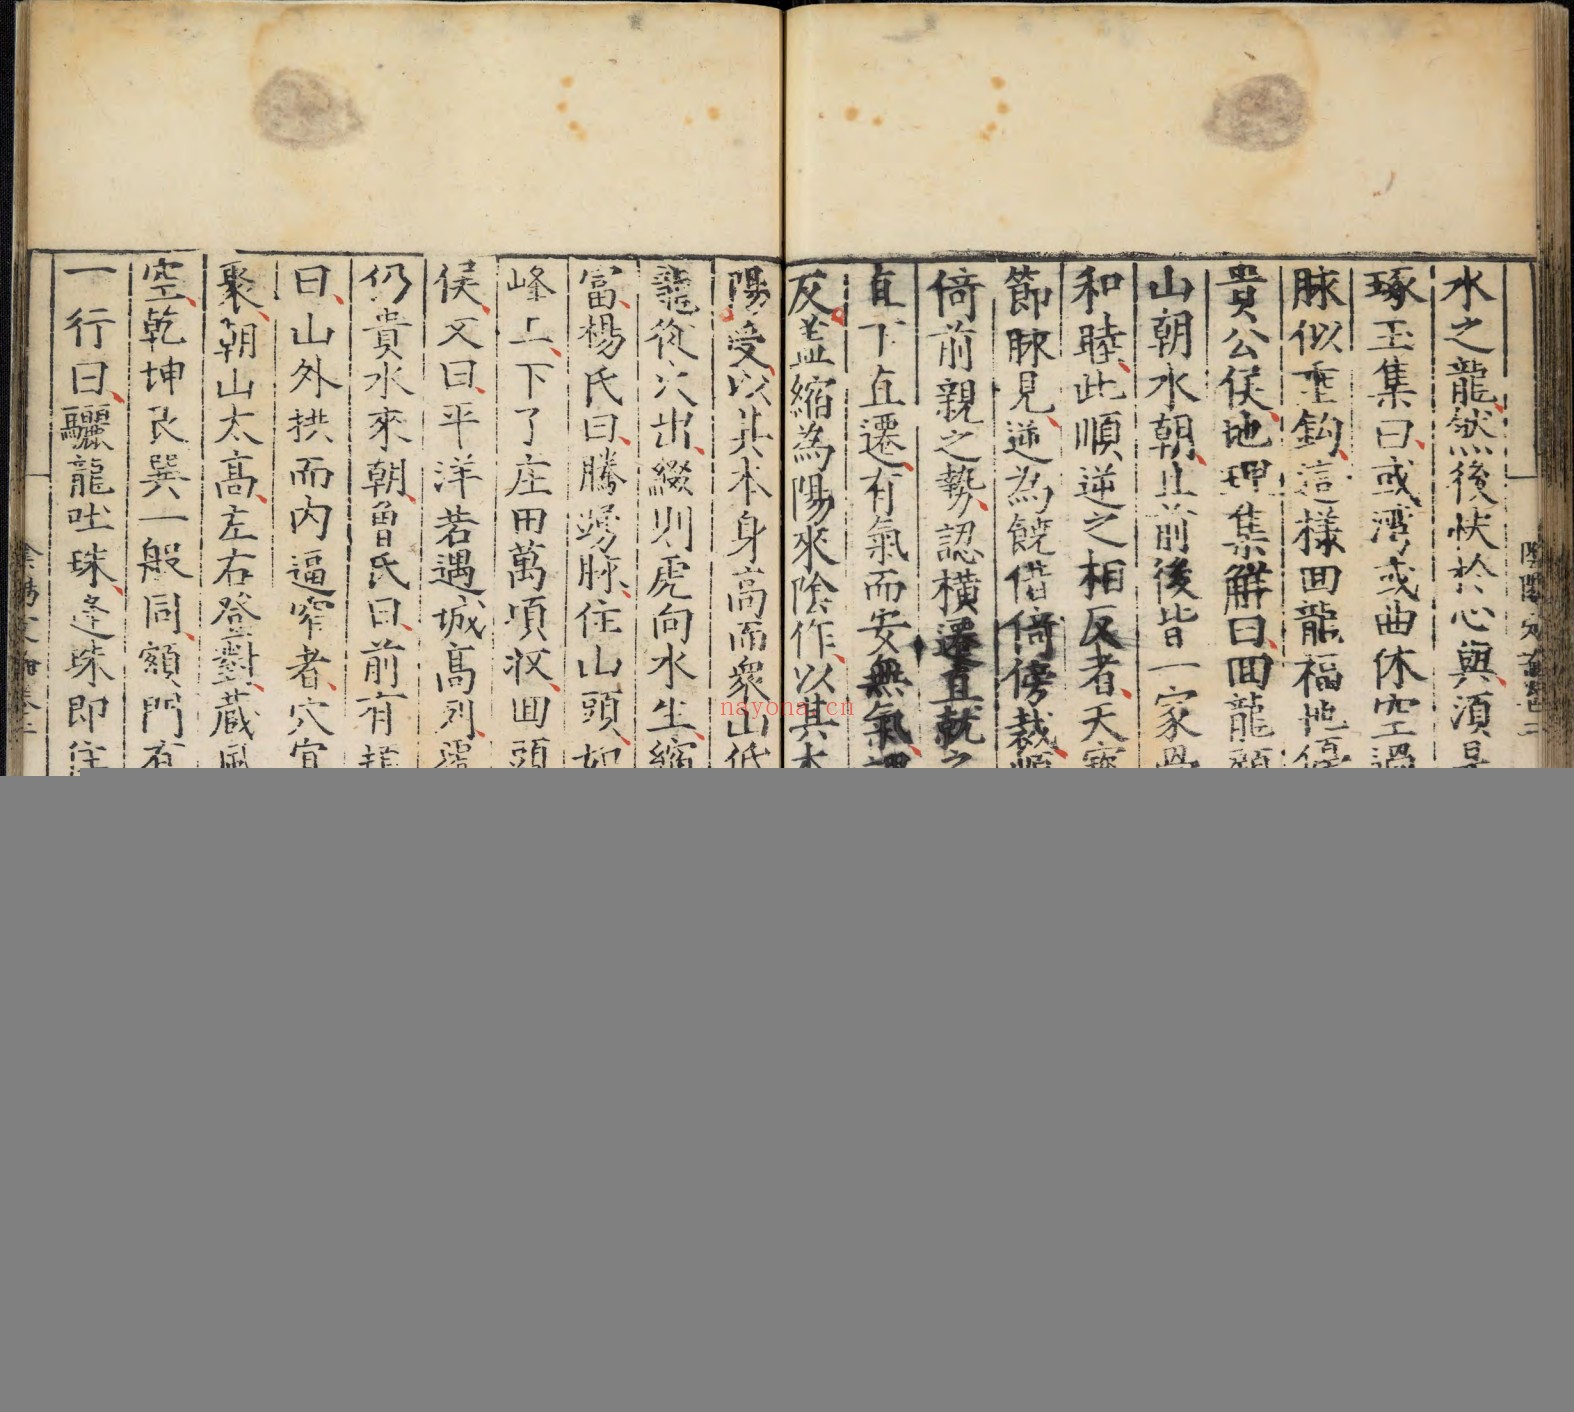 水之龍然後快於心與須是
琢玉集曰或灣或曲休空過
脉似垂鈎這樣囬龍福地
貴公侯地理集解曰囬龍顧
山朝水朝止前後皆一家骨
和睦此順逆之相反者天寶
節脉見逆為饒借倚傍裁順
倚前親之勢認橫遷直就之
直下直遷有氣而安無氣
反蓋縮為陽來陰作以其本
陽受以其本身高而衆山低
龍後次出綴則虎向水生縮
富楊氏曰騰踴脉住山頭如
峰上下了庄田萬頃収囬頭
侯又曰平洋若遇城高列
仍貴水來朝魯氏曰前有
曰山外拱而内逼窄者穴宜
聚朝山太高左右登對藏風
空乾坤艮巽一般同額門有
一行曰驪龍吐珠逢珠即住
nayona.cn